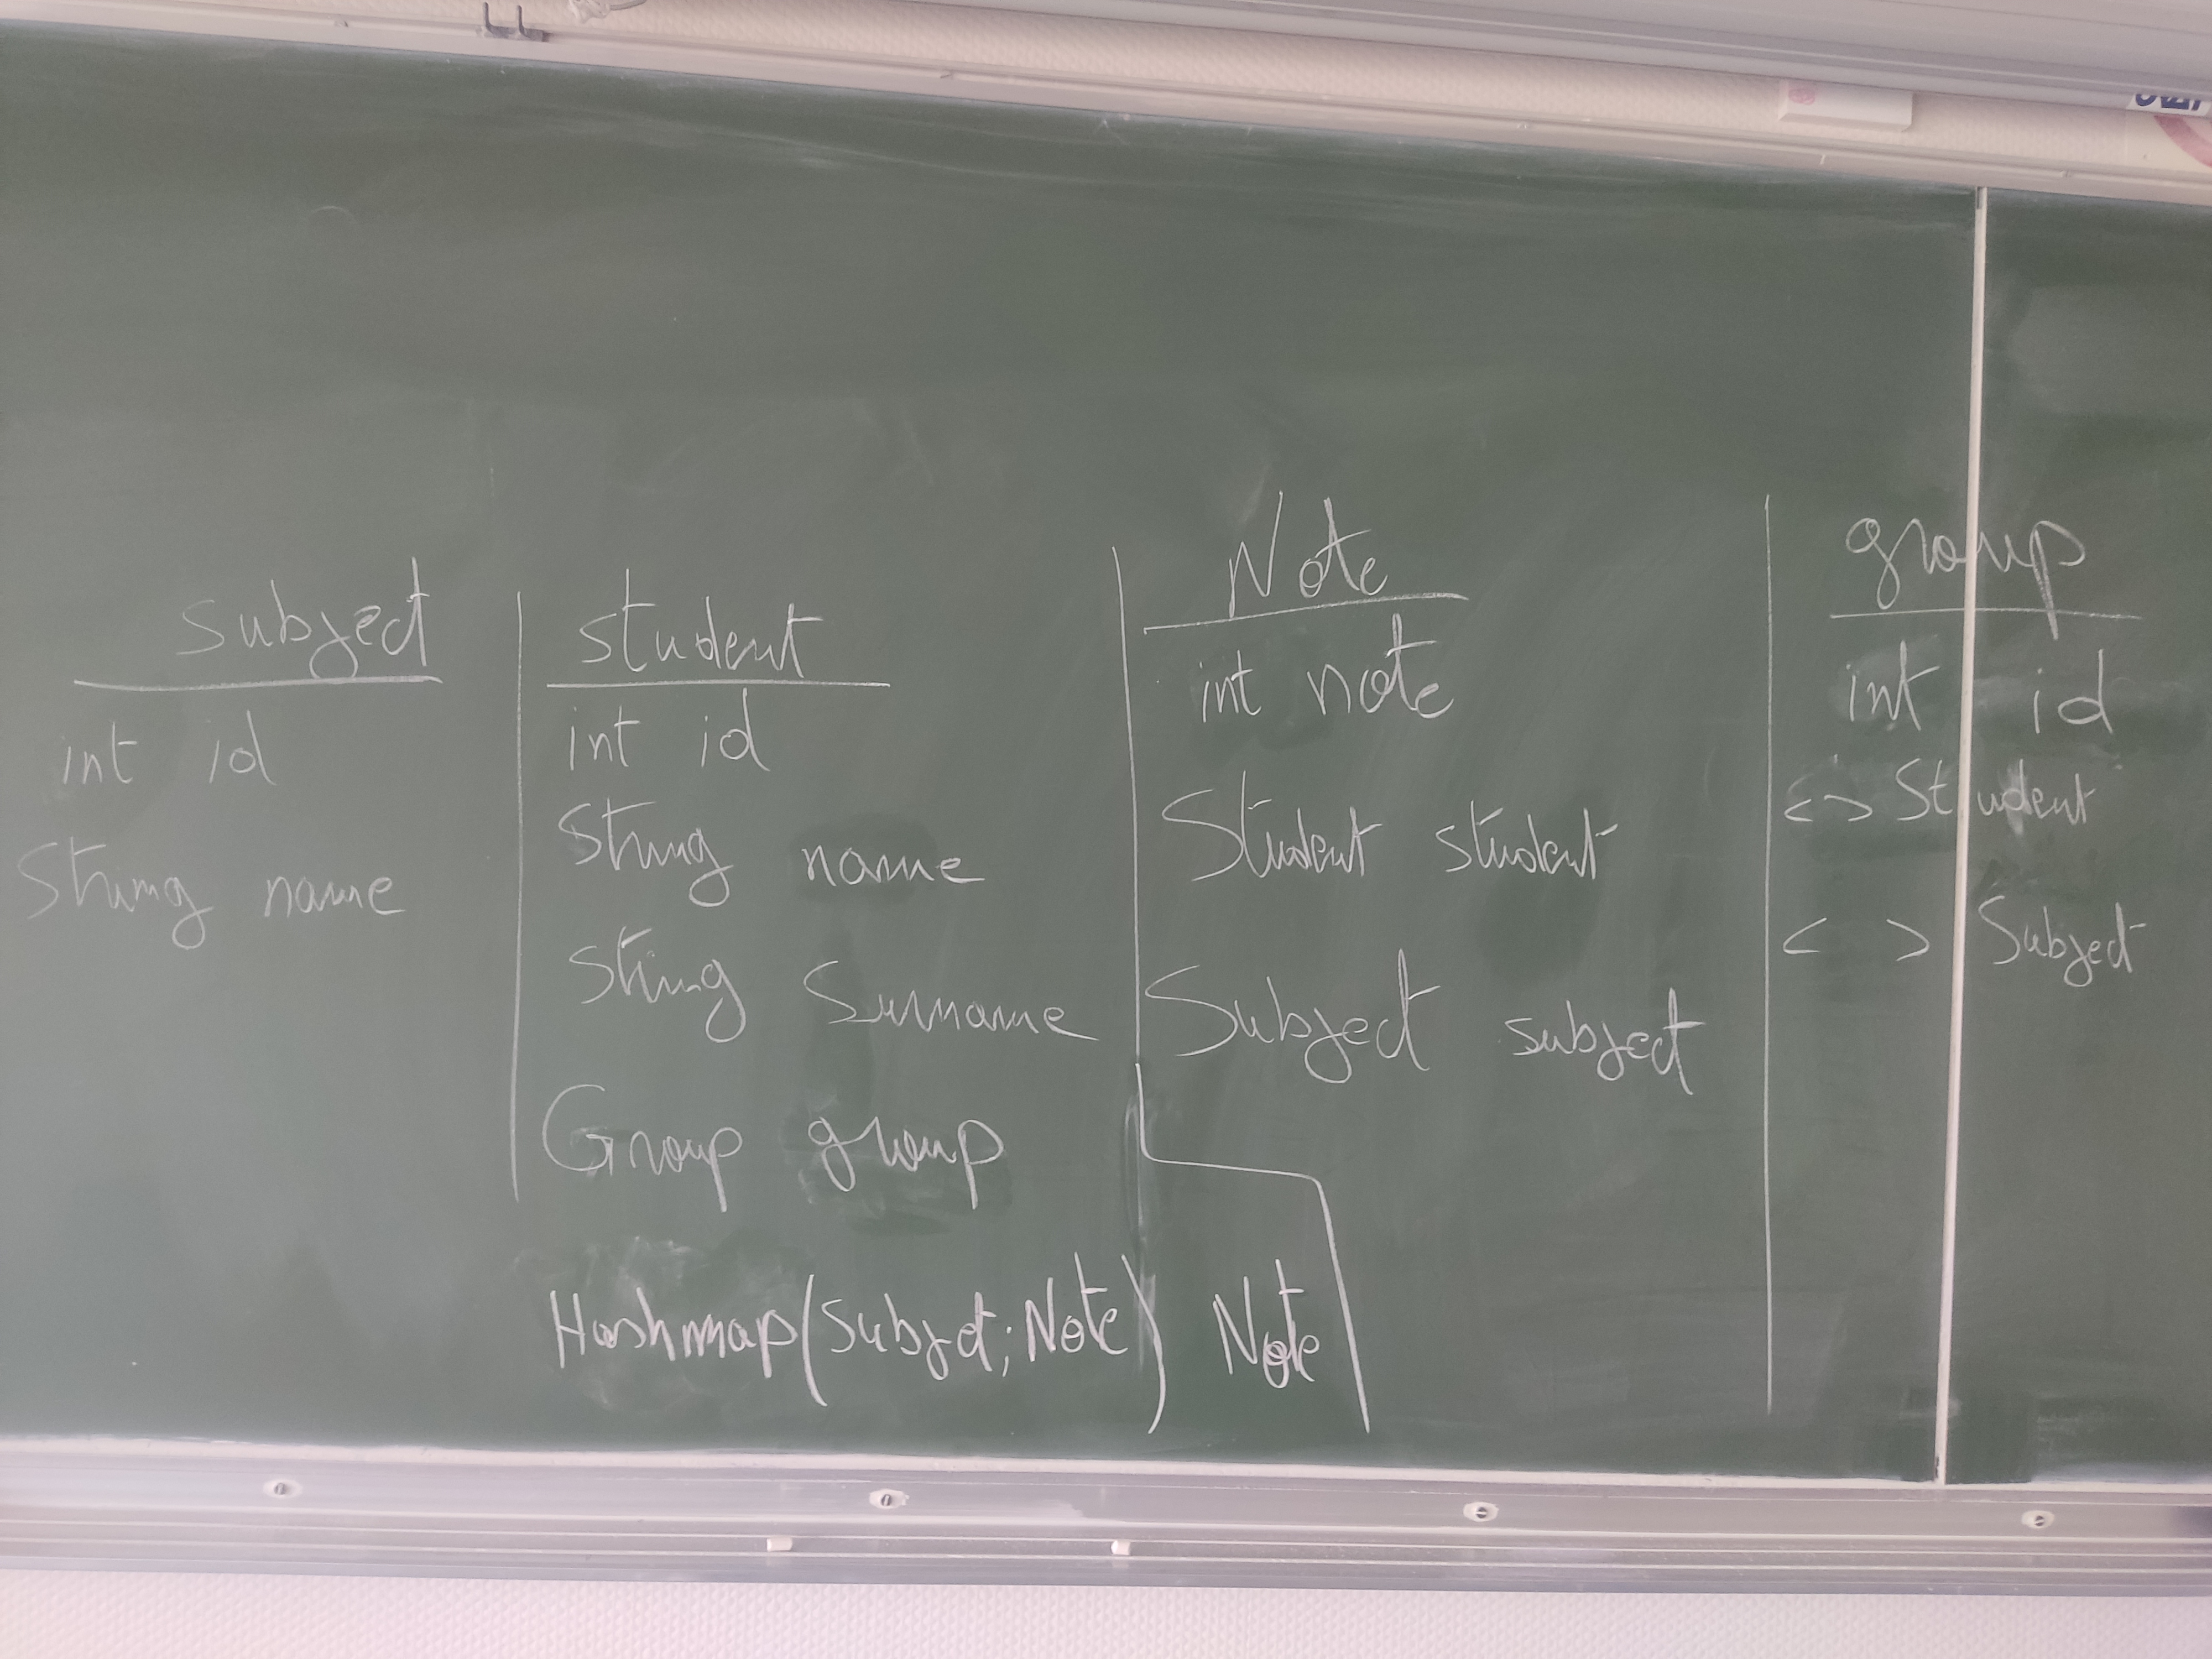 subject
int id
String name
student
int id
String name
String Surname
Group group
Hashmap(Subject;Note) Note
Note
int note
Student student
Subject subject
group
int id
<> Student
< > Subject